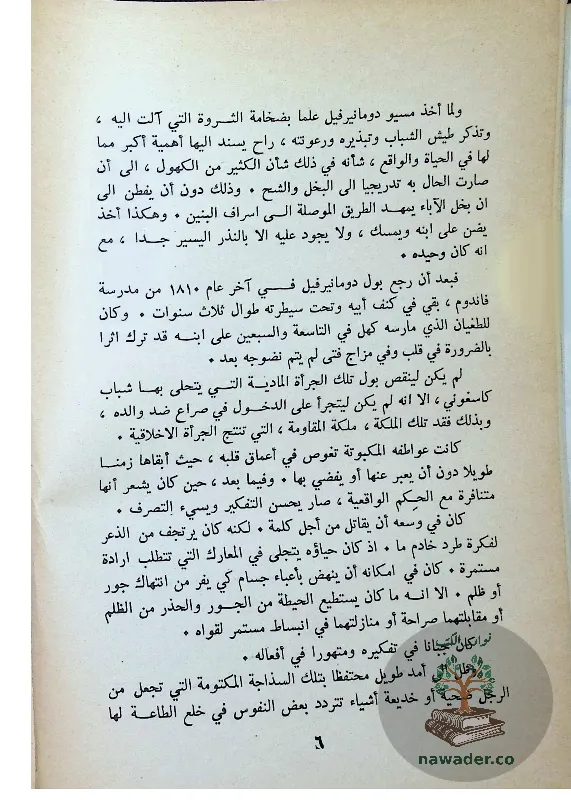 ولما أخذ مسيو دومانيرفيل علما بضخامة الثروة التي آلت اليه ،
وتذكر طيش الشباب وتبذيره ورعونته ، راح يسند اليها أهمية أكبر مما
لها في الحياة والواقع ، شأنه في ذلك شأن الكثير من الكهول ، الى أن
صارت الحال به تدريجيا الى البخل والشح ٠ وذلك دون أن يفطن الى
ان بخل الآباء يمهد الطريق الموصلة الى اسراف البنين ٠ وهكذا أخذ
يضن على ابنه ويمسك ، ولا يجود عليه الا بالنذر اليسير جدا ، مع
انه كان وحيده ٠
فبعد أن رجع بول دومانيرفيل في آخر عام ١٨١٠ من مدرسة
فاندوم ، بقي في كنف أبيه وتحت سيطرته طوال ثلاث سنوات ٠ وكان
للطغيان الذي مارسه كهل في التاسعة والسبعين على ابنه قد ترك اثرا
بالضرورة في قلب وفي مزاج فتى لم يتم نضوجه بعد ٠
لم يكن لينقص بول تلك الجرأة المادية التي يتحلى بها شباب
كاسغوني ، الا انه لم يكن ليتجرأ على الدخول في صراع ضد والده ،
وبذلك فقد تلك الملكة ، ملكة المقاومة ، التي تنتج الجرأة الاخلاقية ٠
كانت عواطفه المكبوتة تغوص في أعماق قلبه ، حيث أبقاها زمنا
طويلا دون أن يعبر عنها أو يفضي بها ٠ وفيما بعد ، حين كان يشعر أنها
متنافرة مع الحِكم الواقعية ، صار يحسن التفكير ويسيء التصرف ٠
كان في وسعه أن يقاتل من أجل كلمة ٠ لكنه كان يرتجف من الذعر
لفكرة طرد خادم ما ٠ اذ كان حياؤه يتجلى في المعارك التي تتطلب ارادة
مستمرة ٠ كان في امكانه أن ينهض بأعباء جسام كي يفر من انتهاك جور
أو ظلم ٠ الا انه ما كان يستطيع الحيطة من الجور والحذر من الظلم
أو مقابلتهما صراحة أو منازلتهما في انبساط مستمر لقواه ٠
كان جبانا في تفكيره ومتهورا في أفعاله ٠
أمد طويل محتفظا بتلك السذاجة المكتومة التي تجعل من
الرجل ضحية أو خديعة أشياء تتردد بعض النفوس في خلع الطاعة لها
٦
نوادر الكتب
nawader.co